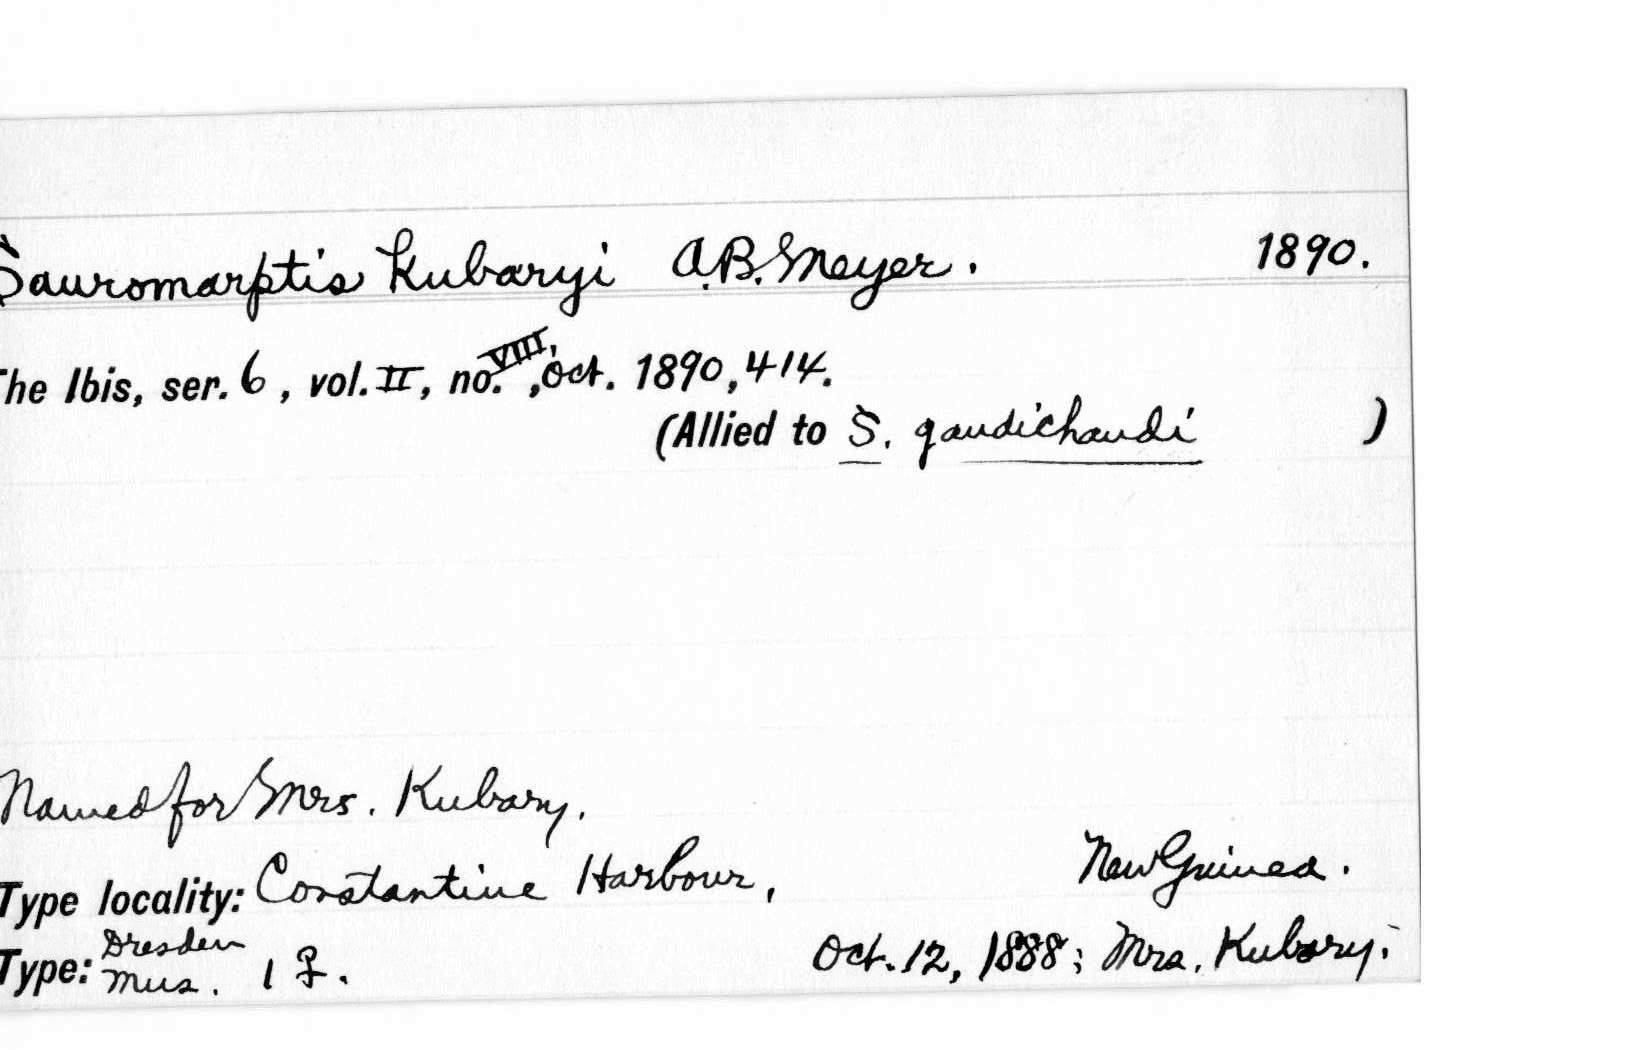 Sauromarptis kubaryi A.B. Meyer. 1890.
The Ibis, ser. 6, vol. II, no. VIII, Oct. 1890, 414.
(Allied to S. gaudichaudi )
Named for Mrs. Kubary.
Type locality: Constantine Harbour, New Guinea.
Type: Dresden Mus. 1 ♀. Oct. 12, 1888; Mrs. Kubary.